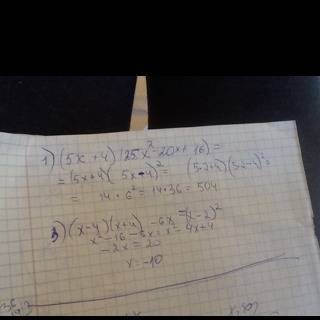 1) (5x+4)(25x²-20x+16)=
=(5x+4)(5x-4)²= (5·2+4)(5·2-4)²=
= 14·6²=14·36=504
3) (x-4)(x+4)-6x=(x-2)²
x²-16-6x=x²-4x+4
-2x=20
x=-10